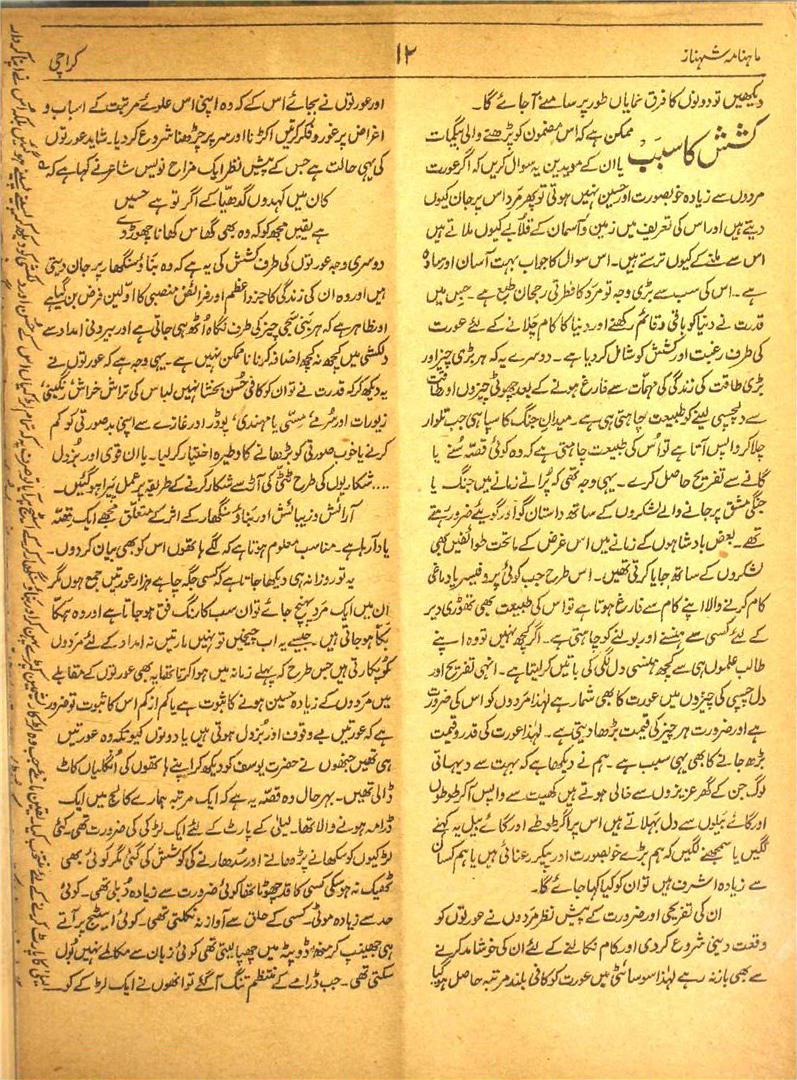 ماہنامہ شہناز
۱۲
کراچی
دیکھیں تو دونوں کا فرق نمایاں طور پر سامنے آ جائے گا۔
کشش کا سبب
ممکن ہے کہ اس مضمون کو پڑھنے والی بیگمات
یا ان کے مویدین یہ سوال کریں کہ اگر عورت
مردوں سے زیادہ خوبصورت اور حسین نہیں ہوتی تو پھر مرد اس پر جان کیوں
دیتے ہیں اور اس کی تعریف میں زمین و آسمان کے قلابے کیوں ملاتے ہیں
اس سے ملنے کے کیوں ترستے ہیں۔ اس سوال کا جواب بہت آسان اور سادہ
ہے۔ اس کی سب سے بڑی وجہ تو مرد کا فطری رجحان طبع ہے۔ جس میں
قدرت نے دنیا کو باقی و قائم رکھنے اور دنیا کا کام چلانے کے لئے عورت
کی طرف رغبت اور کشش کو شامل کر دیا ہے۔ دوسرے یہ کہ ہر بڑی چیز اور
بڑی طاقت کی زندگی کی مہمات سے فارغ ہونے کے بعد چھوٹی چیزوں اور طاقت
سے دلچسپی لینے کو طبیعت چاہتی ہی ہے۔ میدان جنگ کا سپاہی جب تلوار
چلا کر واپس آتا ہے تو اس کی طبیعت چاہتی ہے کہ وہ کوئی قصہ سنے یا
گانے سے تفریح حاصل کرے۔ یہی وجہ تھی کہ پرانے زمانے میں جنگ یا
جنگی مشق پر جانے والے لشکروں کے ساتھ داستان گو اور گویئے ضرور رہتے
تھے۔ بعض بادشاہوں کے زمانے میں اس غرض کے ماتحت طوائفیں بھی
لشکروں کے ساتھ جایا کرتی تھیں۔ اس طرح جب کوئی پروفیسر یا دماغی
کام کرنے والا اپنے کام سے فارغ ہوتا ہے تو اس کی طبیعت بھی تھوڑی دیر
کے لئے کسی سے ہنسنے اور بولنے کو چاہتی ہے۔ اگر کچھ نہیں تو وہ اپنے
طالب علموں ہی سے کچھ ہنسی دل لگی کی باتیں کر لیتا ہے۔ انہی تفریح اور
دل چسپی کی چیزوں میں عورت کا بھی شمار ہے لہٰذا مردوں کو اس کی ضرورت
ہے اور ضرورت ہر چیز کی قیمت بڑھا دیتی ہے۔ لہٰذا عورت کی قدر و قیمت
بڑھ جانے کا بھی یہی سبب ہے۔ ہم نے دیکھا ہے کہ بہت سے دیہاتی
لوگ جن کے گھر عزیزوں سے خالی ہوتے ہیں کھیت سے واپس آ کر طوطوں
اور گائے بیلوں سے دل بہلاتے ہیں اس پر اگر طوطے اور گائے بیل یہ کہنے
لگیں یا سمجھنے لگیں کہ ہم بڑے خوبصورت اور پیکر رعنائی ہیں یا ہم کسان
سے زیادہ اشرف ہیں تو ان کو کیا کہا جائے گا۔
ان کی تفریحی اور ضرورت کے پیش نظر مردوں نے عورتوں کو
وقعت دینی شروع کر دی اور کام نکالنے کے لئے ان کی خوشامد کرنے
سے بھی باز نہ رہے لہٰذا سوسائٹی میں عورت کو کافی بلند مرتبہ حاصل ہو گیا
اور عورتوں نے بجائے اس کے کہ وہ اپنی اس علوئے مرتبت کے اسباب و
اغراض پر غور و فکر کرتیں اکڑنا اور سر پر چڑھنا شروع کر دیا۔ شاید عورتوں
کی یہی حالت ہے جس کے پیش نظر ایک مزاح نویس شاعر نے کہا ہے کہ
کان میں کہدوں گدھیا کے اگر تو ہے حسیں
ہے یقیں مجھ کو کہ وہ بھی گھاس کھانا چھوڑ دے
دوسری وجہ عورتوں کی طرف کشش کی یہ ہے کہ وہ بناؤ سنگھار پر جان دیتی
ہیں اور وہ ان کی زندگی کا جزو اعظم اور فرائض منصبی کا اولین فرض بن گیا ہے
اور ظاہر ہے کہ ہر بنی سجی چیز کی طرف نگاہ اٹھ ہی جاتی ہے اور بیرونی امداد سے
دلکشی میں کچھ نہ کچھ اضافہ کرنا ناممکن نہیں ہے۔ یہی وجہ ہے کہ عورتوں نے
یہ دیکھ کر کہ قدرت نے تو ان کو کافی حسن بخشا نہیں لباس کی تراش خراش، رنگینی،
زیورات اور سرمے، مسی یا مہندی، پوڈر اور غازے سے اپنی بد صورتی کو کم
کرنے یا خوب صورتی کو بڑھانے کا وطیرہ اختیار کر لیا۔ یا ان قوی اور بزدل
.... شکاریوں کی طرح ٹٹی کی آڑ سے شکار کرنے کے طریقہ پر عمل پیرا ہو گئیں۔
آرائش و زیبائش اور بناؤ سنگھار کے اثر کے متعلق مجھے ایک قصہ
یاد آ رہا ہے۔ مناسب معلوم ہوتا ہے کہ لگے ہاتھوں اس کو بھی بیان کر دوں۔
یہ تو روزانہ ہی دیکھا جاتا ہے کہ کسی جگہ چاہے ہزار عورتیں جمع ہوں مگر
ان میں ایک مرد پہنچ جائے تو ان سب کا رنگ فق ہو جاتا ہے اور وہ ہکا
بکا ہو جاتی ہیں۔ جیسے یہ اب چیخیں تو نہیں مارتیں نہ امداد کے لئے مردوں
کو پکارتی ہیں جس طرح کہ پہلے زمانہ میں ہوا کرتا تھا یہ بھی عورتوں کے مقابلے
میں مردوں کے زیادہ حسین ہونے کا ثبوت ہے یا کم از کم اس کا ثبوت تو ضرور
ہے کہ عورتیں بے وقوف اور بزدل ہوتی ہیں یا دونوں کیونکہ وہ عورتیں
ہی تھیں جنھوں نے حضرت یوسف کو دیکھ کر اپنے ہاتھوں کی انگلیاں کاٹ
ڈالی تھیں۔ بہرحال وہ قصہ یہ ہے کہ ایک مرتبہ ہمارے کالج میں ایک
ڈرامہ ہونے والا تھا۔ لیلیٰ کے پارٹ کے لئے ایک لڑکی کی ضرورت تھی۔ کئی
لڑکیوں کو سکھانے پڑھانے اور سدھارنے کی کوشش کی گئی مگر کوئی بھی
ٹھیک نہ ہو سکی کسی کا قد چھوٹا تھا کوئی ضرورت سے زیادہ دبلی تھی۔ کوئی
حد سے زیادہ موٹی۔ کسی کے حلق سے آواز نہ نکلتی تھی۔ کوئی اسٹیج پر آتے
ہی جھینپ کر منھ دوپٹہ میں چھپا لیتی تھی کوئی زبان سے مکالمے نہیں بول
سکتی تھی۔ جب ڈرامے کے منتظم تنگ آ گئے تو انھوں نے ایک لڑکے کو
لیلیٰ کا پارٹ کرنے کے لئے منتخب کیا۔ یقین مانئے جب وہ لڑکا رنگین کپڑے پہن کر اور بناؤ سنگھار کر کے اسٹیج پر آیا تو